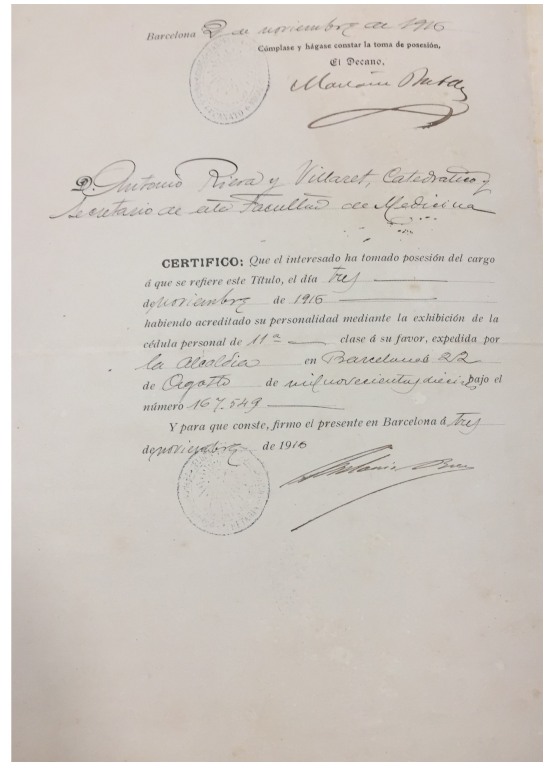 Barcelona 2 de noviembre de 1916
Cúmplase y hágase constar la toma de posesión,
El Decano,
D. Antonio Riera y Villaret, Catedratico y
Secretario de esta Facultad de Medicina
CERTIFICO: Que el interesado ha tomado posesión del cargo
á que se refiere este Título, el día tres
de noviembre de 1916
habiendo acreditado su personalidad mediante la exhibición de la
cédula personal de 11ª clase á su favor, expedida por
la Alcaldia en Barcelona á 22
de Agosto de mil novecientos dieciseis bajo el
número 167.549
Y para que conste, firmo el presente en Barcelona á tres
de noviembre de 1916